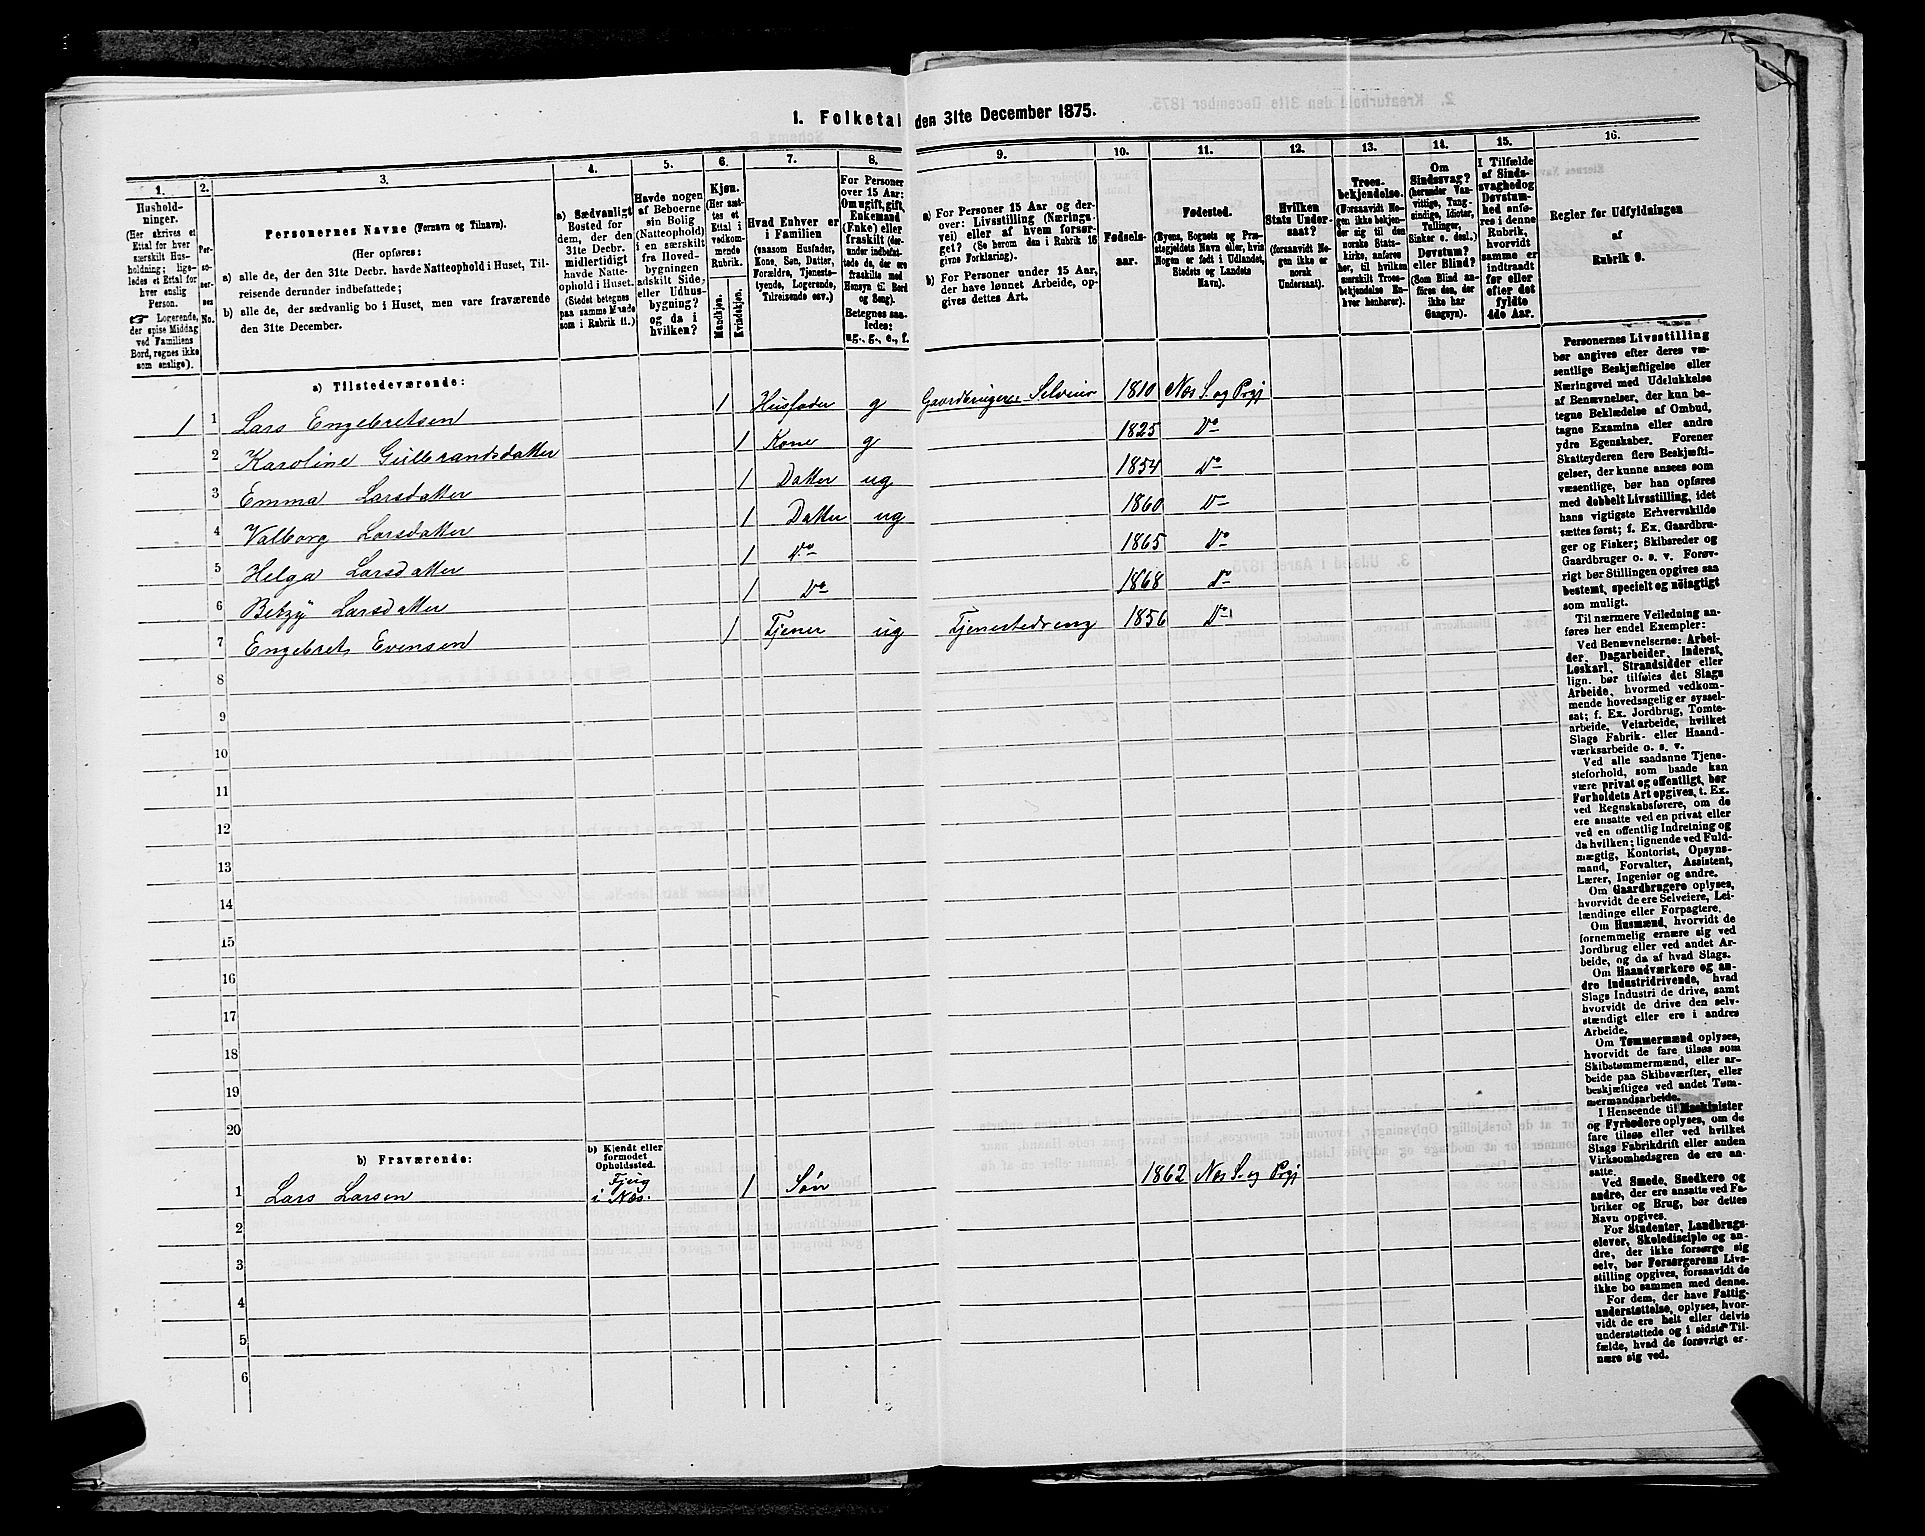 1. Folketal den 31te December 1875.
1. 2. 3. 4. 5. 6. 7. 8. 9. 10. 11. 12. 13. 14. 15. 16.
Hushold-
ninger.
(Her skrives et
Ettal for hver
særskilt Hus-
holdning; lige-
ledes et Ettal for
hver enslig
Person.
☞ Logerende,
der spise Middag
ved Familiens
Bord, regnes ikke
som enslige).
Per-
so-
ner-
nes
No.
Personernes Navne (Fornavn og Tilnavn).
(Her opføres:
a) alle de, der den 31te Decbr. havde Natteophold i Huset, Til-
reisende derunder indbefattede;
b) alle de, der sædvanlig bo i Huset, men vare fraværende
den 31te December.
a) Sædvanligt
Bosted for
dem, der den
31te Decbr.
midlertidigt
havde Natte-
ophold i Huset.
(Stedet betegnes
paa samme Maade
som i Rubrik 11.)
Havde nogen
af Beboerne
sin Bolig
(Natteophold)
i en særskilt
fra Hoved-
bygningen
adskilt Side-
eller Udhus-
bygning?
og da i
hvilken?
Kjøn.
(Her sæt-
tes et
Ettal i
vedkom-
mende
Rubrik.
Mandkjøn.
Kvindekjøn.
Hvad Enhver er
i Familien
(saasom Husfader,
Kone, Søn, Datter,
Forældre, Tjeneste-
tyende, Logerende,
Tilreisende osv.)
For Personer
over 15 Aar:
Om ugift, gift,
Enkemand
(Enke) eller
fraskilt (der-
under indbefat-
tede de, der ere
fraskilte med
Hensyn til Bord
og Seng).
Betegnes saa-
ledes:
ug., g., e., f.
a) For Personer 15 Aar og der-
over: Livsstilling (Nærings-
vei) eller af hvem forsør-
get? (Se herom den i Rubrik 16
givne Forklaring).
b) For Personer under 15 Aar,
der have lønnet Arbeide, op-
gives dettes Art.
Fødsels-
aar.
Fødested.
(Byens, Sognets og Præ-
stegjeldets Navn eller, hvis
Nogen er født i Udlandet,
Stedets og Landets
Navn).
Hvilken
Stats Under-
saat?
(forsaavidt No-
gen ikke er
norsk
Undersaat).
Troes-
bekjendelse.
(Forsaavidt No-
gen ikke bekjen-
der sig til den
norske Stats-
kirke, anføres
her, til hvilken
særskilt Troes-
bekjendelse En-
hver henhører).
Om
Sindssvag?
(herunder Van-
vittige, Tung-
sindige, Idioter,
Tullinger,
Sinker o. desl.)
Døvstum?
eller Blind?
(Som Blind an-
føres den, der
ikke har
Gangsyn).
I Tilfælde
af Sinds-
svaghed og
Døvstum-
hed anfø-
res i denne
Rubrik,
hvorvidt
samme er
indtraadt
før eller
efter det
fyldte
4de Aar.
Regler for Udfyldningen
af
Rubrik 9.
a) Tilstedeværende:
1 1 Lars Engebretsen 1 Husfader g Gaardbruger Selveier 1810 Næs S. og Prgj
2 Karoline Gulbrandsdatter 1 Kone g 1825 Do
3 Emma Larsdatter 1 Datter ug 1854 Do
4 Valborg Larsdatter 1 Datter ug 1860 D—
5 Helga Larsdatter 1 Do 1865 Do
6 Betzy Larsdatter 1 Do 1868 Do
7 Engebret Evensen 1 Tjener ug Tjenestedreng 1856 Do
8
9
10
11
12
13
14
15
16
17
18
19
20
b) Fraværende:
b) Kjendt eller
formodet
Opholdssted.
1 Lars Larsen Fjerg i Næs. 1 Søn 1862 Næs S. og Prgj
2
3
4
5
6
Personernes Livsstilling
bør angives efter deres væ-
sentlige Beskjæftigelse eller
Næringsvei med Udelukkelse
af Benævnelser, der kun be-
tegne Beklædelse af Ombud,
tagne Examina eller andre
ydre Egenskaber. Forener
Skatteyderen flere Beskjæfti-
gelser, der kunne ansees som
væsentlige, bør han opføres
med dobbelt Livsstilling, idet
hans vigtigste Erhvervskilde
sættes først; f. Ex. Gaardbru-
ger og Fisker; Skibsreder og
Gaardbruger o. s. v. Forøv-
rigt bør Stillingen opgives saa
bestemt, specielt og nøiagtigt
som muligt.
Til nærmere Veiledning an-
føres her endel Exempler:
Ved Benævnelserne: Arbei-
der, Dagarbeider, Inderst,
Løskarl, Strandsidder eller
lign. bør tilføies det Slags
Arbeide, hvormed vedkom-
mende hovedsagelig er syssel-
sat; f. Ex. Jordbrug, Tomte-
arbeide, Veiarbeide, hvilket
Slags Fabrik- eller Haand-
værksarbeide o. s. v.
Ved alle saadanne Tjene-
steforhold, som baade kan
være privat og offentligt, bør
Forholdets Art opgives, t. Ex.
ved Regnskabsførere, om de
ere ansatte ved en privat eller
ved en offentlig Indretning og
da hvilken; lignende ved Fuld-
mægtig, Kontorist, Opsyns-
mand, Forvalter, Assistent,
Lærer, Ingeniør og andre.
Om Gaardbrugere oplyses,
hvorvidt de ere Selveiere, Lei-
lændinge eller Forpagtere.
Om Husmænd, hvorvidt de
fornemmelig ernære sig ved
Jordbrug eller ved andet Ar-
beide, og da af hvad Slags.
Om Haandværkere og an-
dre Industridrivende, hvad
Slags Industri de drive, samt
hvorvidt de drive den selv-
stændigt eller ere i andres
Arbeide.
Om Tømmermænd oplyses,
hvorvidt de fare tilsøs som
Skibstømmermænd, eller ar-
beide paa Skibsværfter, eller
beskjæftiges ved andet Tøm-
mermandsarbeide.
I Henseende til Maskinister
og Fyrbødere oplyses, om de
fare tilsøs eller ved hvilket
Slags Fabrikdrift eller anden
Virksomhedsgren de ere an-
satte.
Ved Smede, Snedkere og
andre, der ere ansatte ved Fa-
briker og Brug, bør dettes
Navn opgives.
For Studenter, Landbrugs-
elever, Skoledisciple og an-
dre, der ikke forsørge sig
selv, bør Forsørgerens Livs-
stilling opgives, forsaavidt de
ikke bo sammen med denne.
For dem, der have Fattig-
understøttelse, oplyses, hvor-
vidt de ere helt eller delvis
understøttede og i sidste Til-
fælde, hvad de forøvrigt er-
nære sig ved.